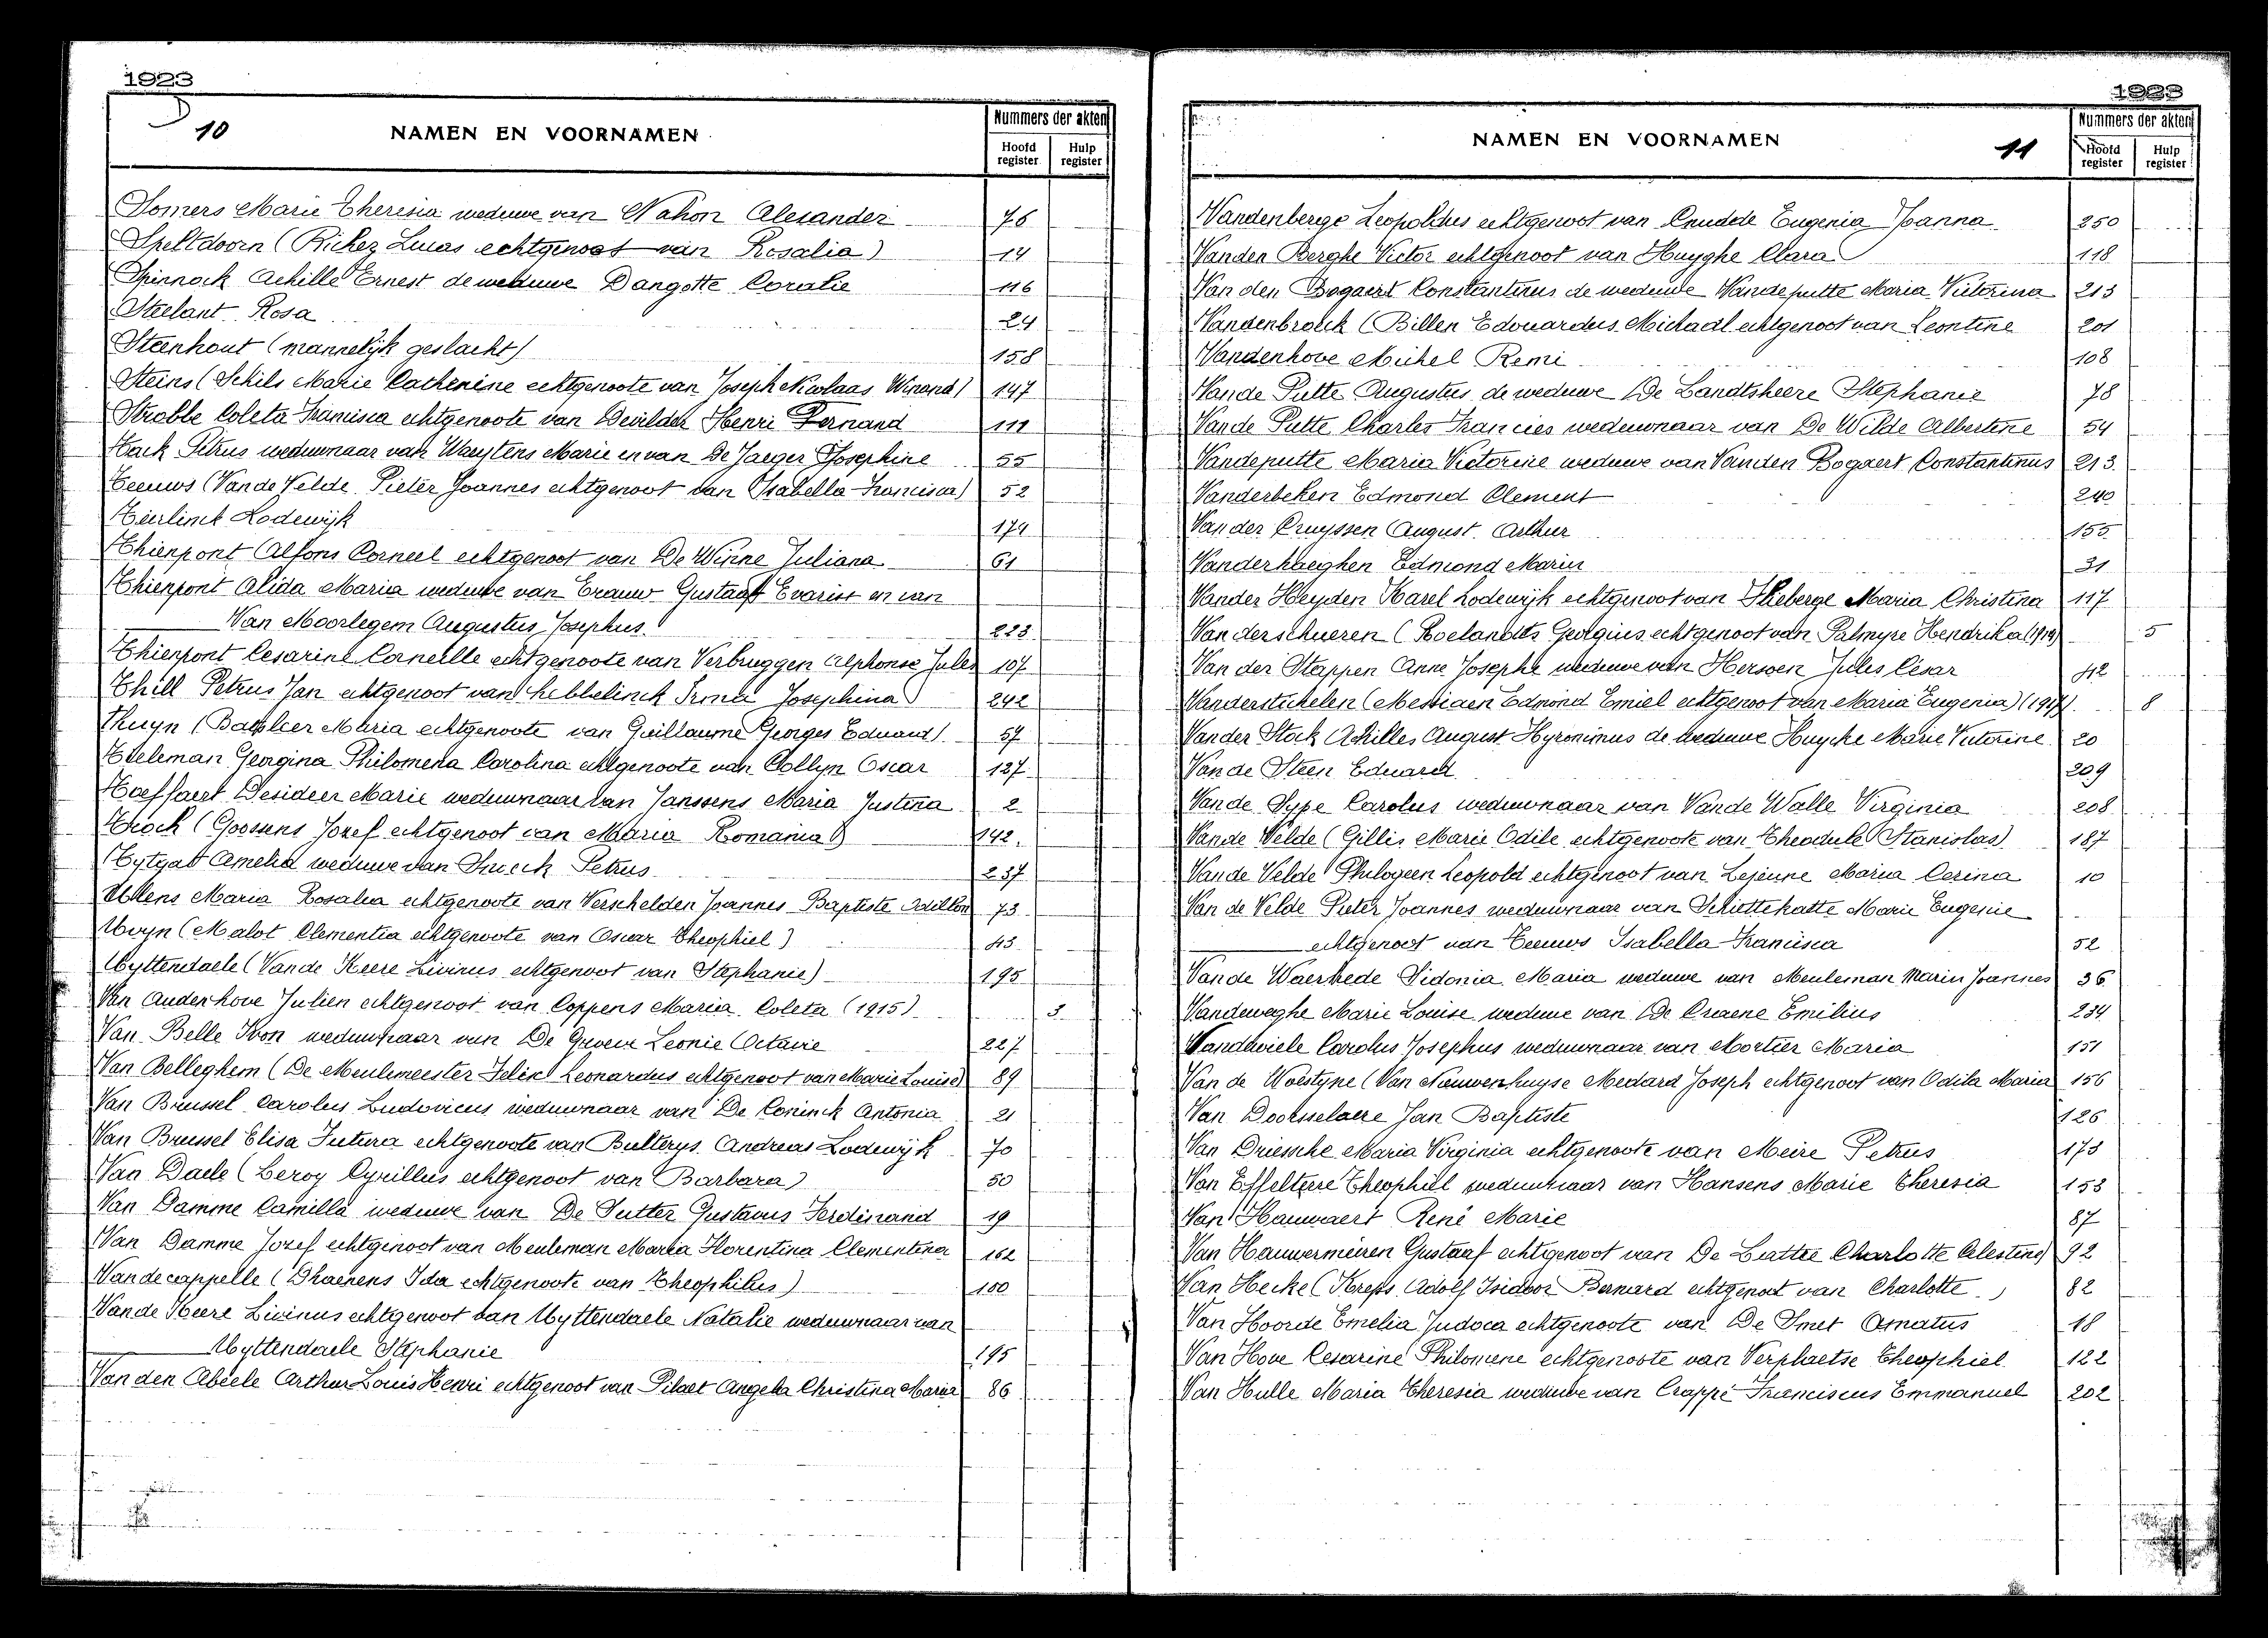 1923
10 NAMEN EN VOORNAMEN Nummers der akten
Hoofd register Hulp register
Somers Marie Theresia weduwe van Nahon Alexander 76
Speltdoorn (Richez Lucas echtgenoot van Rosalia) 14
Spinnock Achille Ernest de weduwe Dangotte Coralie 116
Steelant Rosa 24
Steenhout (mannelijk geslacht) 158
Steins (Schils Marie Catherine echtgenoote van Joseph Nicolaas Winand) 147
Strobbe Coleta Francisca echtgenoote van Dewilder Henri Fernand 111
Tack Petrus weduwnaar van Wauters Marie en van De Jaeger Josephine 55
Teeuws (Van de Velde Pieter Joannes echtgenoot van Isabella Francisca) 52
Teirlinck Lodewijk 174
Thienpont Alfons Corneel echtgenoot van De Winne Juliana 61
Thienpont Alida Maria weduwe van Erauw Gustaaf Evarist en van
Van Moorlegem Augustus Josephus 223
Thienpont Cesarine Corneille echtgenoote van Verbruggen Alphonse Jules 107
Thill Petrus Jan echtgenoot van Irma Josephina 242
Thuyn (Maria echtgenoote van Guillaume Georges Eduard) 57
Tieleman Georgina Philomena Carolina echtgenoote van Collyn Oscar 137
Toeffaert Desideer Marie weduwnaar van Janssens Maria Justina 2
Troch (Goossens Jozef echtgenoot van Maria Romania) 142
Tytgat Amelia weduwe van Petrus 237
Uttens Maria Rosalia echtgenoote van Verschelden Joannes Baptiste Odillon 73
Uvyn (Malot Clementia echtgenoote van Oscar Theophiel) 43
Uyttendaele (Van de Keere Livinus echtgenoot van Stephanie) 195
Van Audenhove Julien echtgenoot van Coppens Maria Coleta (1915) 3
Van Belle Ivon weduwnaar van De Groeve Leonie Octavie 227
Van Belleghem (De Meulemeester Felix Leonardus echtgenoot van Marie Louise) 89
Van Brussel Carolus Ludovicus weduwnaar van De Coninck Antonia 21
Van Brussel Elisa Futura echtgenoote van Bulterys Andreas Lodewijk 70
Van Daele (Leroy Cyrillus echtgenoot van Barbara) 50
Van Damme Camilla weduwe van De Sutter Gustavus Ferdinand 19
Van Damme Jozef echtgenoot van Meuleman Maria Florentina Clementina 162
Vandecappelle (Dhaenens Ida echtgenoote van Theophilus) 100
Van de Keere Livinus echtgenoot van Uyttendaele Natalie weduwnaar van
Uyttendaele Stephanie 195
Van den Abeele Arthur Louis Henri echtgenoot van Pilaet Angela Christina Maria 86
1923
NAMEN EN VOORNAMEN 11 Nummers der akten
Hoofd register Hulp register
Vandenberge Leopoldus echtgenoot van Cnudde Eugenia Joanna 250
Vanden Berghe Victor echtgenoot van Huyghe Clara 118
Van den Bogaert Constantinus de weduwe Vandeputte Maria Victorina 213
Vandenbrouck (Billen Edouardus Michaël echtgenoot van Leontine 201
Vandenhove Michel Remi 108
Van de Putte Augustus de weduwe De Landtsheere Stephanie 78
Van de Putte Charles Francies weduwnaar van De Wilde Albertine 54
Vandeputte Maria Victorine weduwe van Vanden Bogaert Constantinus 213
Vanderbeken Edmond Clement 240
Van der Cruyssen August Arthur 155
Vanderhaeghen Edmond Marie 31
Vander Heyden Karel Lodewijk echtgenoot van Theberge Maria Christina 117
Van derschueren (Roelandts Georgius echtgenoot van Palmyre Hendrika (1919) 5
Van der Stappen Anne Josephe weduwe van Herssen Jules César 42
Vanderstichelen (Messiaen Edmond Emiel echtgenoot van Maria Eugenia) (1917) 8
Van der Stock Achilles August Hyronimus de weduwe Huycke Marie Victorine 20
Van de Steen Eduard 209
Van de Sype Carolus weduwnaar van Van de Walle Virginia 208
Van de Velde (Gillis Marie Odile echtgenoote van Theodule Stanislas) 187
Van de Velde Philogeen Leopold echtgenoot van Lejeune Maria Cesina 10
Van de Velde Pieter Joannes weduwnaar van Schottekatte Marie Eugenie
echtgenoot van Teeuws Isabella Francisca 52
Van de Waerhede Sidonia Maria weduwe van Meuleman Marin Joannes 36
Vandeweghe Marie Louise weduwe van De Craene Emilius 234
Vandewiele Carolus Josephus weduwnaar van Mortier Maria 151
Van de Woestyne (Van Nauwenhuyse Medard Joseph echtgenoot van Odila Maria 156
Van Doorsselaere Jan Baptiste 126
Van Driessche Maria Virginia echtgenoote van Meire Petrus 173
Van Effeltere Theophiel weduwnaar van Hansens Marie Theresia 153
Van Hauwaert René Marie 87
Van Hauwermeiren Gustaaf echtgenoot van De Lattre Charlotte Celestine 92
Van Hecke (Kreps Adolf Isidoor Bernard echtgenoot van Charlotte) 82
Van Hoorde Emelia Judoca echtgenoote van De Smet Amatus 18
Van Hove Cesarine Philomene echtgenoote van Verplaetse Theophiel 122
Van Hulle Maria Theresia weduwe van Crappé Franciscus Emmanuel 202